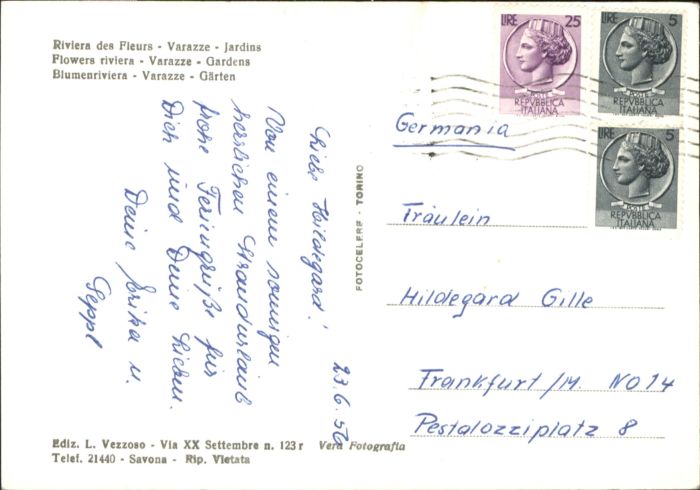 Riviera des Fleurs - Varazze - Jardins
Flowers riviera - Varazze - Gardens
Blumenriviera - Varazze - Gärten
23.6.56
Liebe Hildegard!
Von einem sonnigen
herrlichen Strandurlaub
frohe Feriengrüße für
Dich und Deine Lieben.
Deine Erika u.
Seppl
FOTOCELERE - TORINO
LIRE 25
POSTE
REPVBBLICA
ITALIANA
LIRE 5
POSTE
REPVBBLICA
ITALIANA
LIRE 5
POSTE
REPVBBLICA
ITALIANA
Germania
Fräulein
Hildegard Gille
Frankfurt/M. NO 14
Pestalozziplatz 8
Ediz. L. Vezzoso - Via XX Settembre n. 123 r Vera Fotografia
Telef. 21440 - Savona - Rip. Vietata